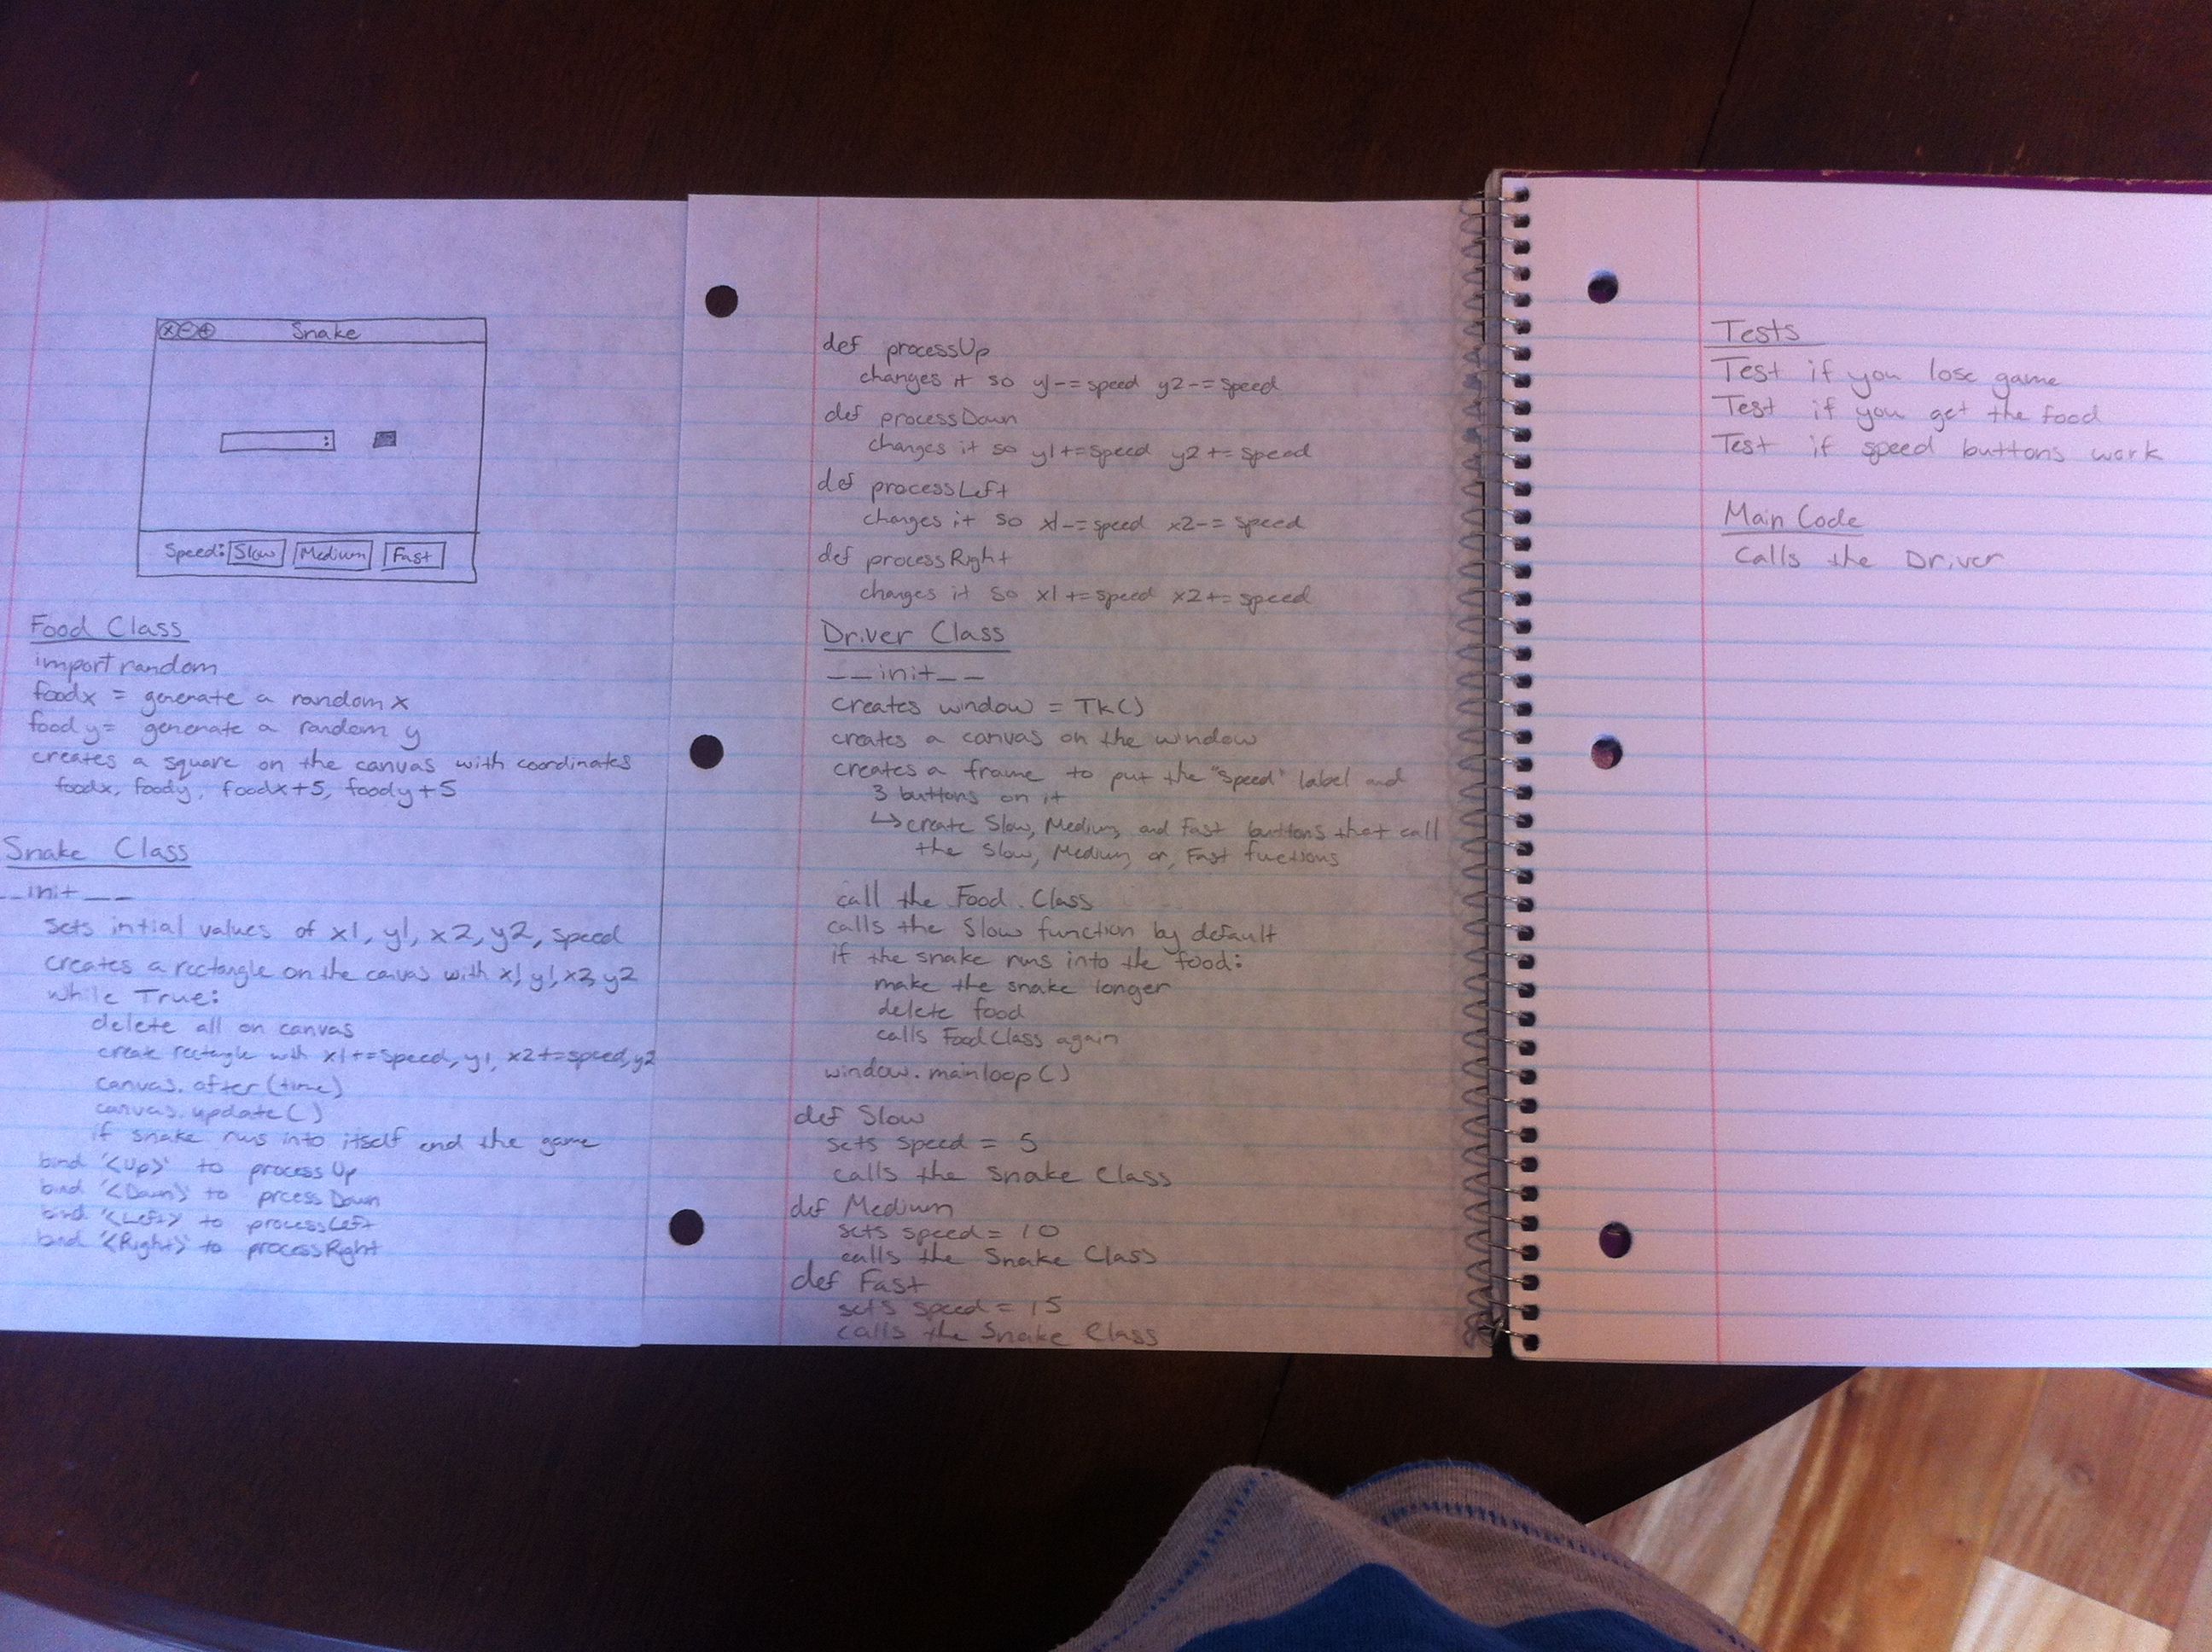 Snake
Speed: Slow Medium Fast
Food Class
import random
foodx = generate a random x
foody = generate a random y
creates a square on the canvas with coordinates
foodx, foody, foodx+5, foody+5
Snake Class
__init__
sets intial values of x1, y1, x2, y2, speed
creates a rectangle on the canvas with x1, y1, x2, y2
while True:
delete all on canvas
create rectangle with x1+=speed, y1, x2+=speed, y2
canvas.after(time)
canvas.update()
if snake runs into itself end the game
bind '<Up>' to processUp
bind '<Down>' to prcessDown
bind '<Left>' to processLeft
bind '<Right>' to processRight
def processUp
changes it so y1-=speed y2-=speed
def processDown
changes it so y1+=speed y2+=speed
def processLeft
changes it so x1-=speed x2-=speed
def processRight
changes it so x1+=speed x2+=speed
Driver Class
__init__
creates window = Tk()
creates a canvas on the window
creates a frame to put the "speed" label and
3 buttons on it
↳ create Slow, Medium, and Fast buttons that call
the Slow, Medium, or, Fast functions
call the Food Class
calls the Slow function by default
if the snake runs into the food:
make the snake longer
delete food
calls Food Class again
window.mainloop()
def Slow
sets speed = 5
calls the Snake Class
def Medium
sets speed = 10
calls the Snake Class
def Fast
sets speed = 15
calls the Snake Class
Tests
Test if you lose game
Test if you get the food
Test if speed buttons work
Main Code
Calls the Driver